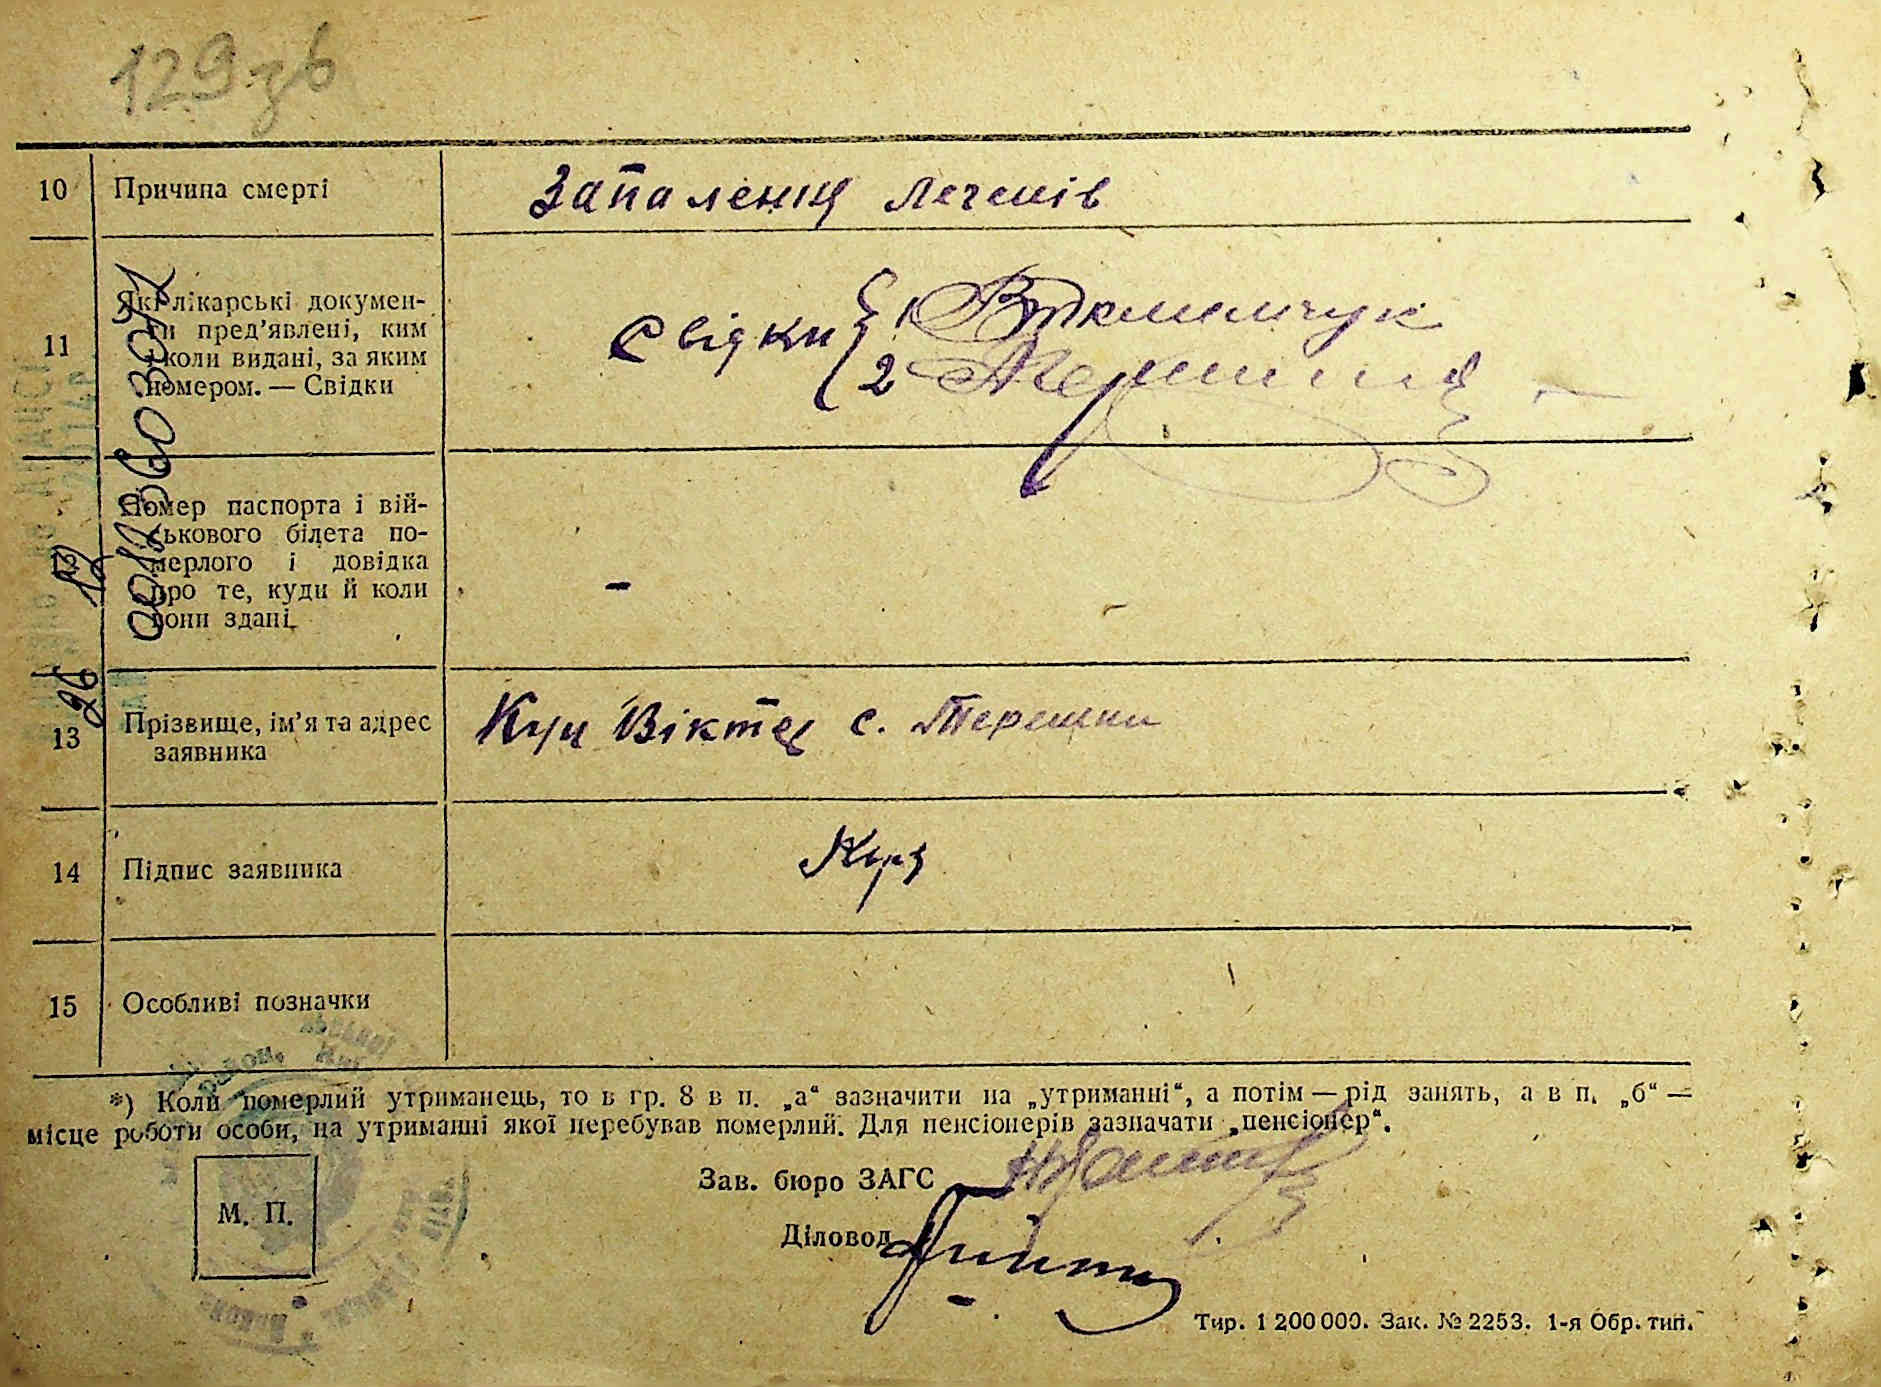 129 зв
10 Причина смерті Запалення легенів
11 Які лікарські докумен-
ти пред'явлені, ким
і коли видані, за яким
номером. — Свідки
Свідки 1
2
12 Номер паспорта і вій-
ськового білета по-
мерлого і довідка
про те, куди й коли
вони здані
-
13 Прізвище, ім'я та адрес
заявника
Куц Віктер с. Терешки
14 Підпис заявника Куц
15 Особливі позначки
*) Коли померлий утриманець, то в гр. 8 в п. „а“ зазначити на „утриманні“, а потім — рід занять, а в п. „б“ —
місце роботи особи, на утриманні якої перебував померлий. Для пенсіонерів зазначати „пенсіонер“.
Зав. бюро ЗАГС
М. П.
Діловод
Тир. 1 200 000. Зак. № 2253. 1-я Обр. тип.